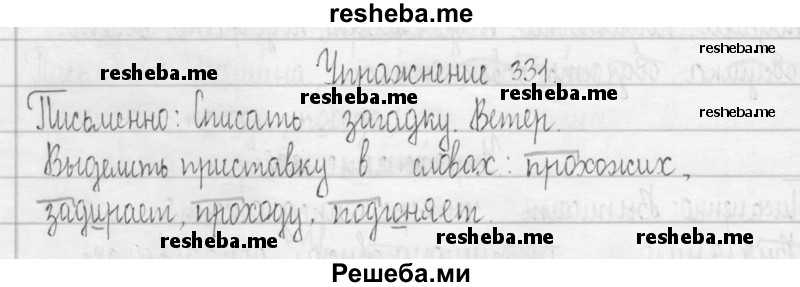 resheba.me
resheba.me
resheba.me
Упражнение 331.
resheba.me
resheba.me
Письменно: Списать загадку. Ветер.
Выделить приставку в словах: прохожих,
задирает, проходу, подгоняет.
resheba.me
resheba.me
resheba.me
Решеба.ми